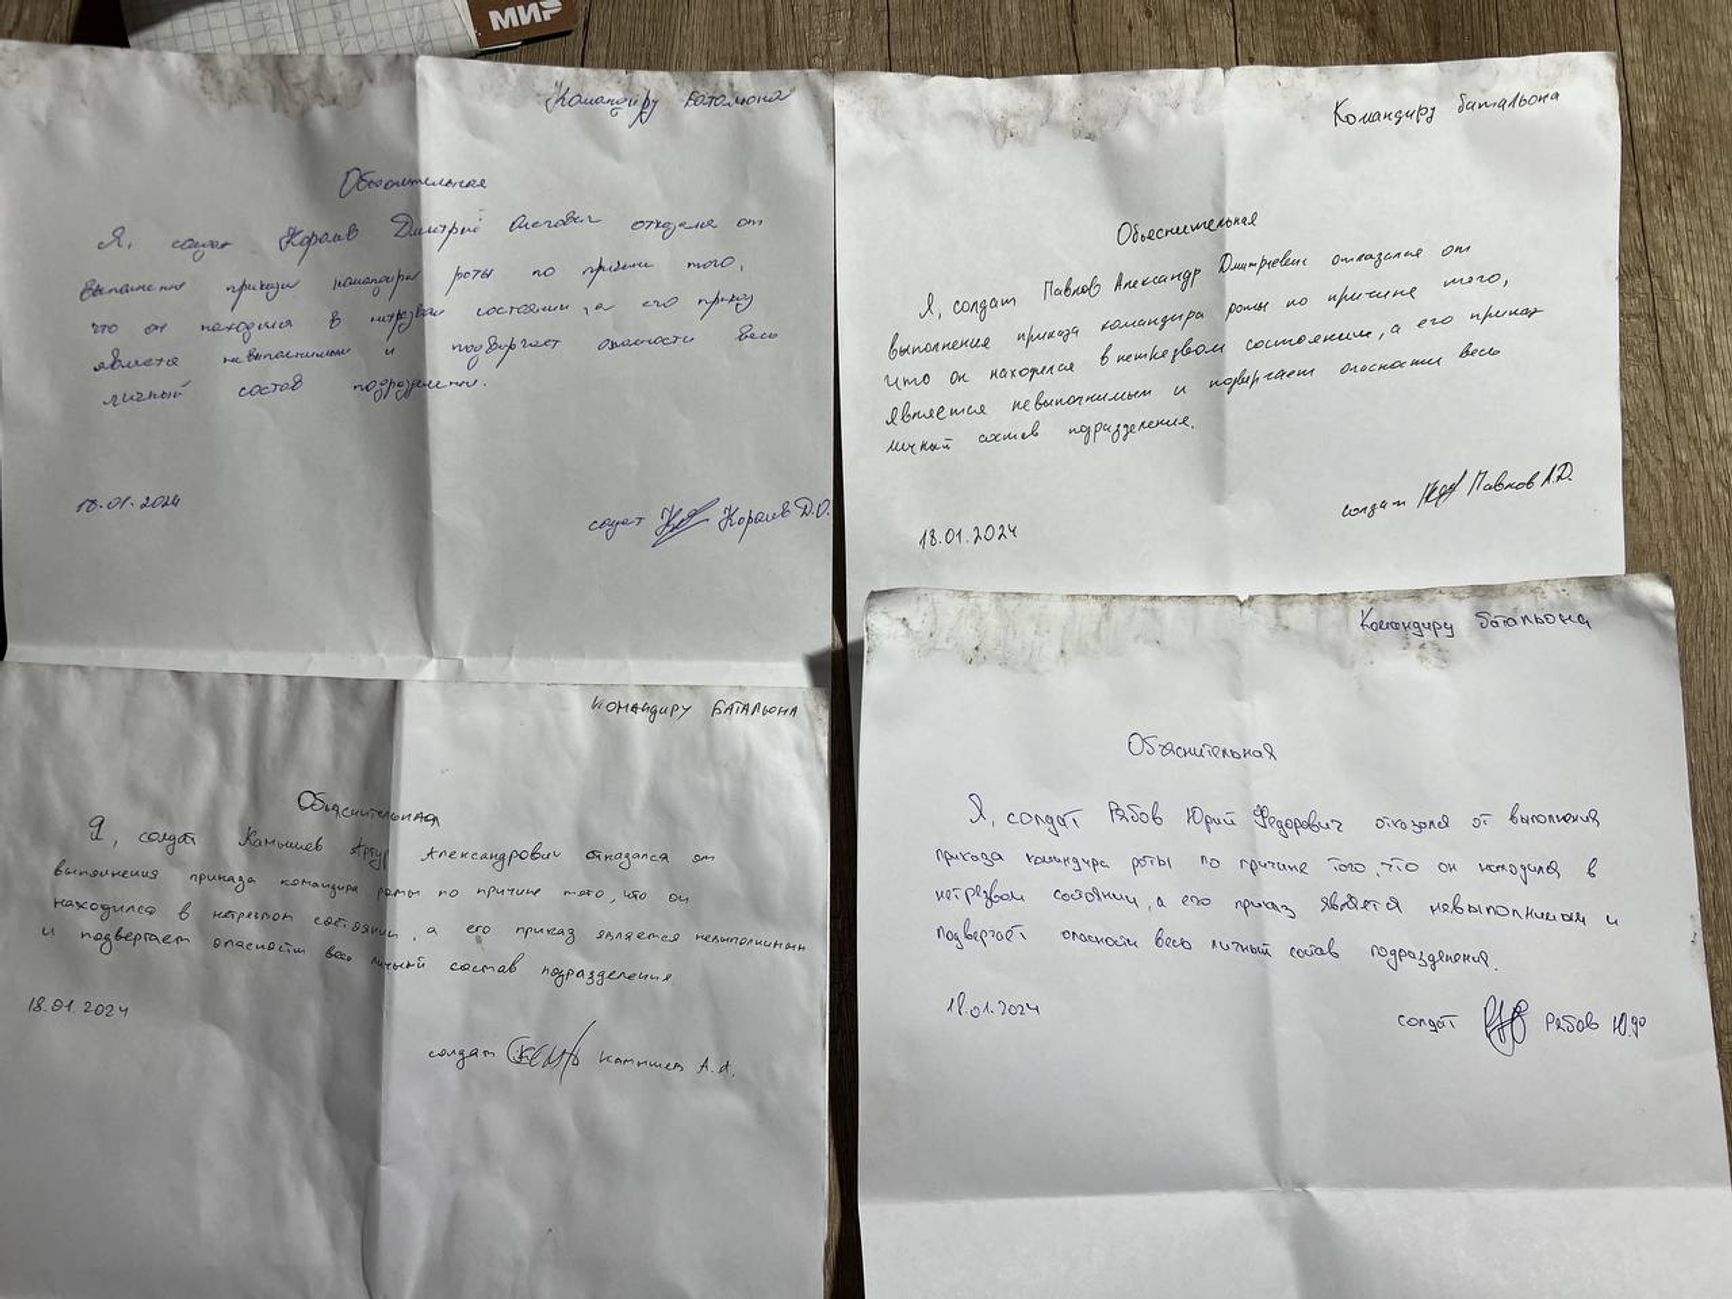 МИР
Командиру Батальона
Объяснительная
Я, солдат Королёв Дмитрий Олегович отказался от
выполнения приказа командира роты по причине того,
что он находился в нетрезвом состоянии, а его приказ
является невыполнимым и подвергает опасности весь
личный состав подразделения.
18.01.2024
солдат Королёв Д.О.
Командиру батальона
Объеснительная
Я, солдат Павлов Александр Дмитриевич отказался от
выполнения приказа командира роты по причине того,
что он находился в нетрезвом состоянии, а его приказ
является невыполнимым и подвергает опасности весь
личный состав подразделения.
18.01.2024
солдат Павлов А.Д.
Командиру Батальона
Объяснительная
Я, солдат Камышев Артур Александрович отказался от
выполнения приказа командира роты по причине того, что он
находился в нетрезвом состоянии, а его приказ является невыполнимым
и подвергает опасности весь личный состав подразделения.
18.01.2024
солдат Камышев А.А.
Командиру батальона
Объяснительная
Я, солдат Рябов Юрий Федорович отказался от выполнения
приказа командира роты по причине того, что он находился в
нетрезвом состоянии, а его приказ является невыполнимым и
подвергает опасности весь личный состав подразделения.
18.01.2024
солдат Рябов Ю.Ф